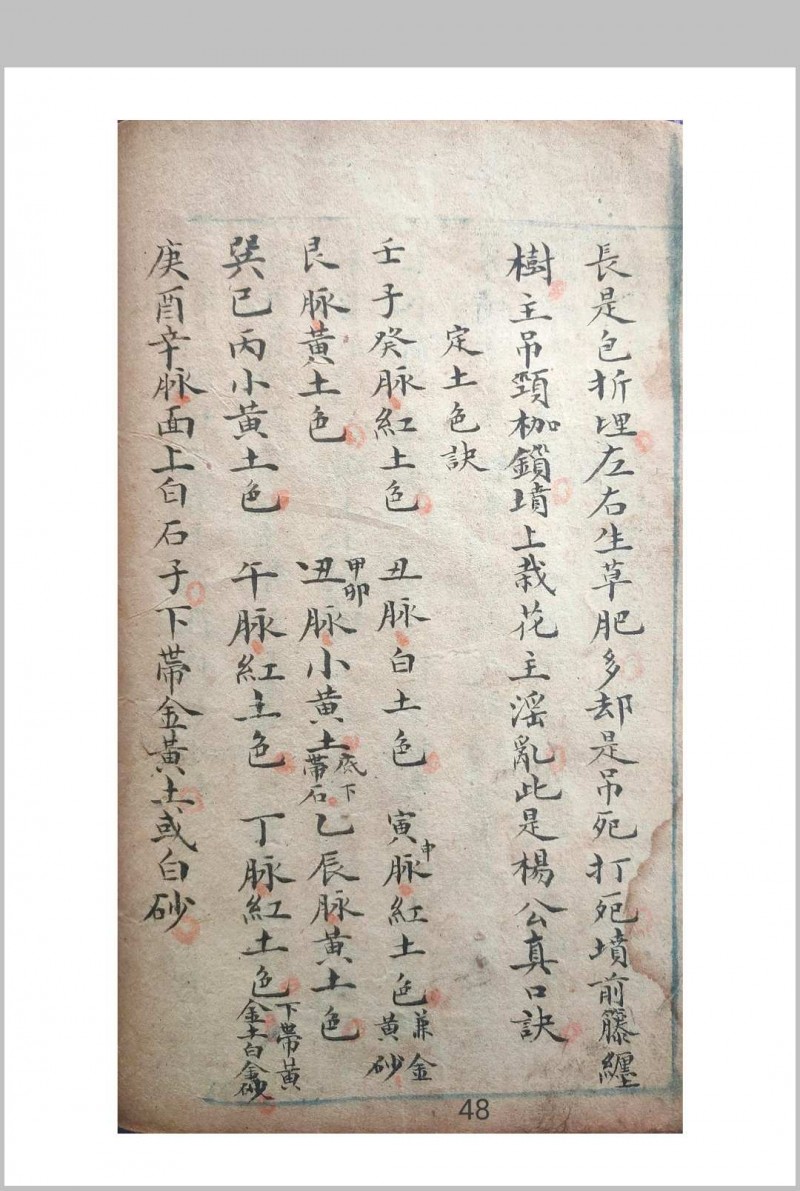 長是包折埋左右生草肥多却是吊死打死墳前籐纏
樹主吊頸枷鎖墳上栽花主滛亂此是楊公真口訣
定土色訣
壬子癸脉紅土色 丑脉白土色 寅申脉紅土色兼金黄砂
艮脉黃土色 甲卯丑脉小黃土底下帶石 乙辰脉黃土色
巽巳丙小黃土色 午脉紅土色 丁脉紅土色下帶黄金土白金砂
庚酉辛脉面上白石子下帶金黃土或白砂
48